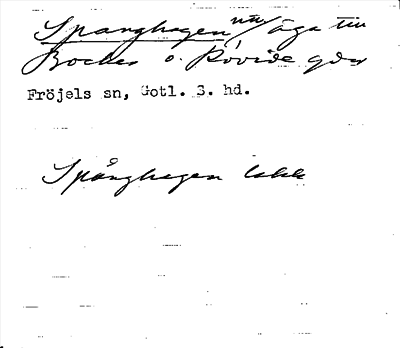 Spanghagen äga till
Bockes o. Rovide gdr
Fröjels sn, Gotl. S. hd.
Spånghagen